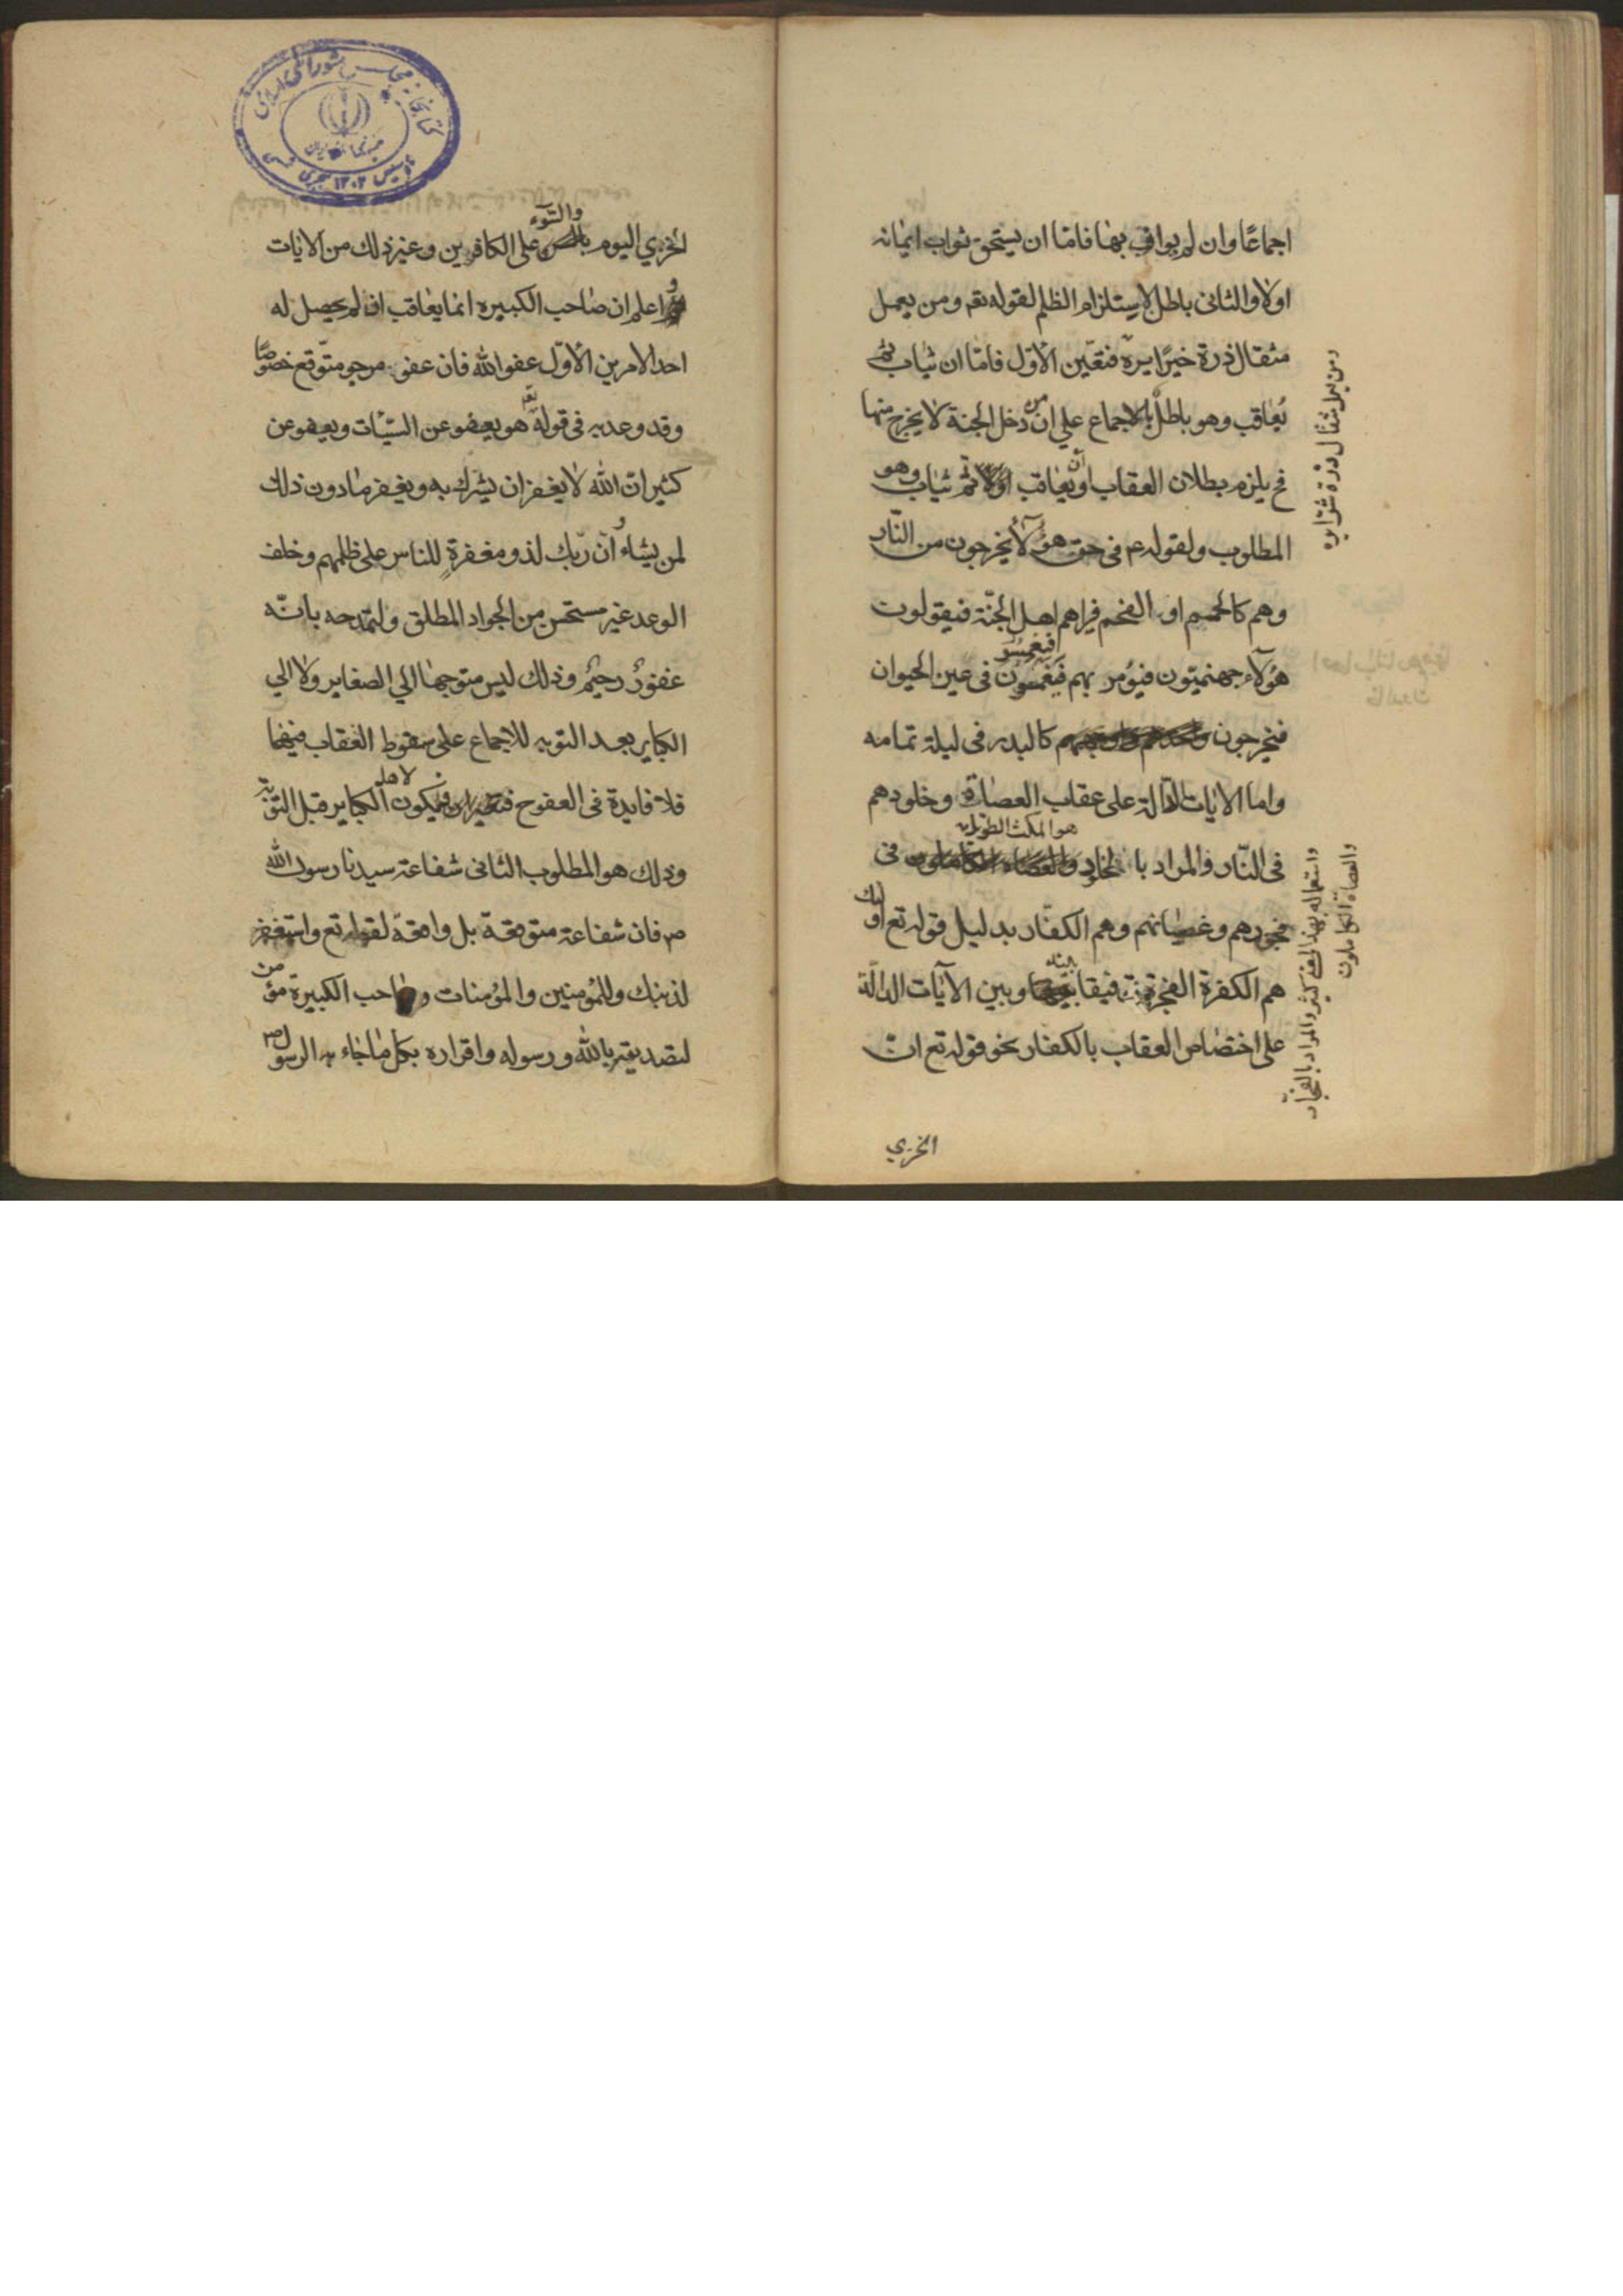 اجماعًا وان لم يوافِ بها فامّا ان يستحق ثواب ايمانه
اولا والثانى باطل لاستلزام الظلم لقوله تعـ ومن يعمل
مثقال ذرة خيرًا يره فتعيّن الأوّل فامّا ان يثاب ثم
يُعاقب وهو باطلٌ بالاجماع على انّ من دخل الجنة لا يخرج منها
فح يلزم بطلان العقاب او أن يعاقب اوّلا ثم يثاب وهو
المطلوب ولقوله ع م فى حق هؤلاء يخرجون من النّار
وهم كالحمم او الفحم فيراهم اهل الجنّة فيقولون
هؤلاء جهنميّون فيؤمر بهم فيغمسون فى عين الحيوان
فيغمسو
فيخرجون كالبدر فى ليلة تمامه
واما الايات الدّالة على عقاب العصاة وخلودهم
هو المكث الطويل
فى النّار والمراد بالخلود فى
فجورهم وعصيانهم وهم الكفّار بدليل قوله تع اولئك
هم الكفرة الفجرة فيقا بينها وبين الآيات الدالّة
على اختصاص العقاب بالكفار نحو قوله تع انّ
الخزي
ومن يعمل مثقال ذرّة شرّا يره
واستعماله بهذا المعنى كثير والمراد بالفجار
والعصاة الكاملون
كتابخانه مجلس شوراى اسلامى
جمهورى اسلامى ايران
تأسيس ۱۳۰۲ هجرى شمسى
والسّوء
الخزي اليوم على الكافرين وغير ذلك من الايات
و اعلم ان صاحب الكبيره انما يعاقب اذا لم يحصل له
احد الامرين الأوّل عفو الله فان عفوه مرجو متوّقع خصوصًا
وقد وعد به فى قوله تعـ هو يعفو عن السيّئات ويعفو عن
كثير انّ الله لا يغفر ان يشرك به ويغفر ما دون ذلك
لمن يشاء و انّ ربّك لذو مغفرةٍ للناس على ظلمهم وخلف
الوعد غير مستحسن من الجواد المطلق ولتمدحه بانّه
غفورٌ رحيمٌ وذلك ليس متوجها الى الصغاير ولا الى
الكباير بعد التوبه للاجماع على سقوط العقاب فيهما
فلا فايدة فى العفو ح فيكون لاهل الكباير قبل التوبة
وذلك هو المطلوب الثانى شفاعة سيدنا رسول الله
ص فان شفاعته متوقعة بل واقعة لقوله تع واستغفر
لذنبك وللمؤمنين والمؤمنات وصاحب الكبيرة مؤمن
لتصديقه بالله ورسوله واقراره بكل ما جاء به الرسول ص